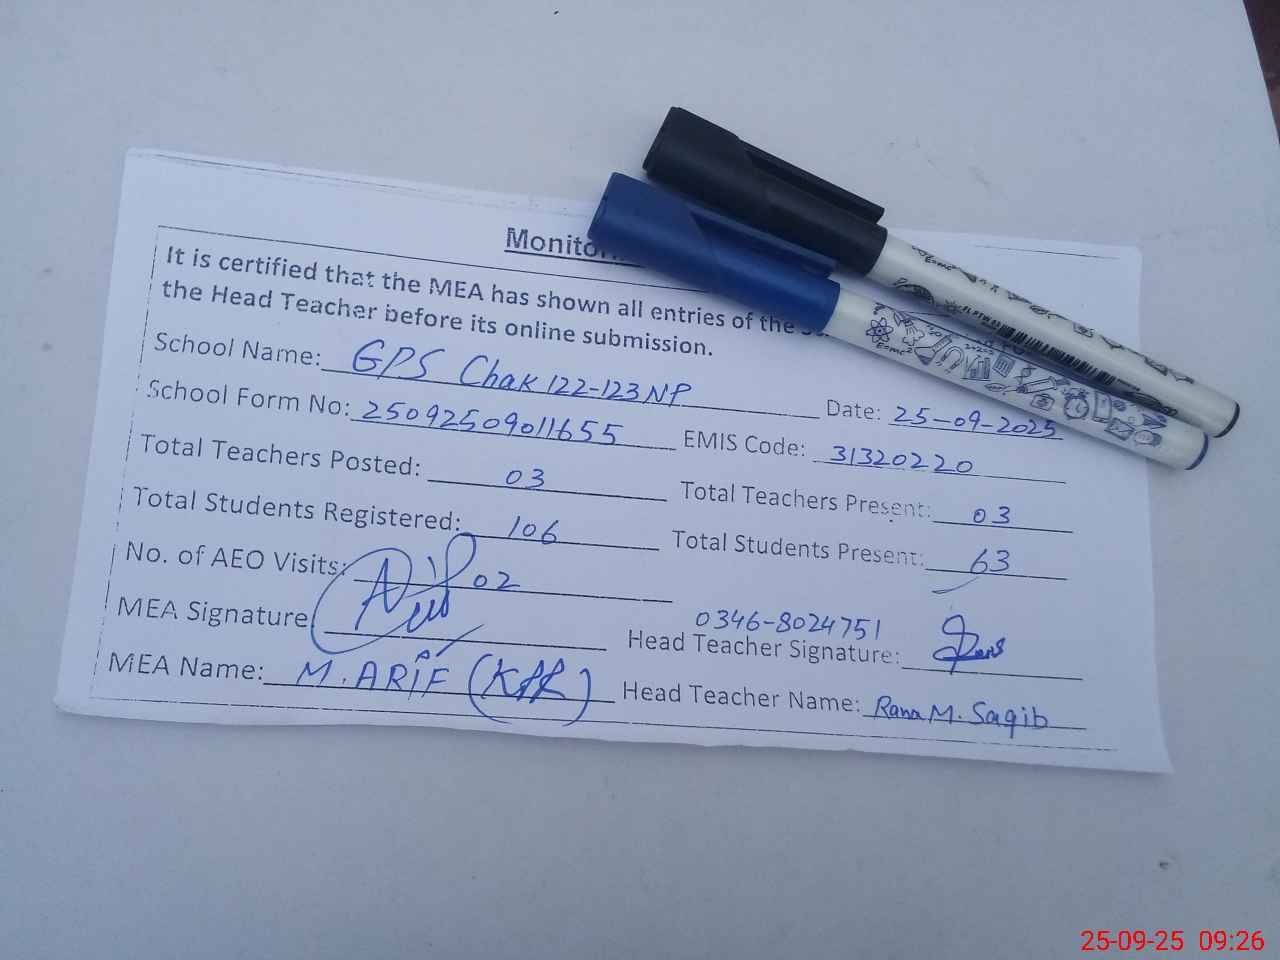 It is certified that the MEA has shown all entries of the
the Head Teacher before its online submission.
School Name: GPS Chak 122-123 NP Date: 25-09-2025
School Form No: 25092509011655 EMIS Code: 31320220
Total Teachers Posted: 03 Total Teachers Present: 03
Total Students Registered: 106 Total Students Present: 63
No. of AEO Visits: 02
0346-8024751
MEA Signature Head Teacher Signature:
MEA Name: M. ARIF Head Teacher Name: Rana M. Saqib
25-09-25 09:26